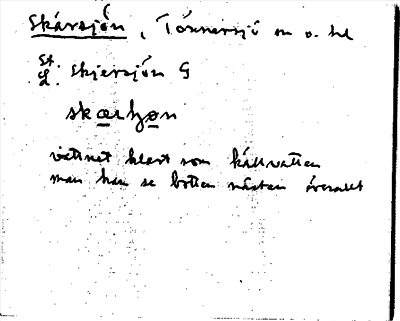 Skärsjön, Tönnersjö sn o. hd
St.
L. skjersjön G
skærhøn
vattnet klart som källvatten
man kan se botten nästan överallt